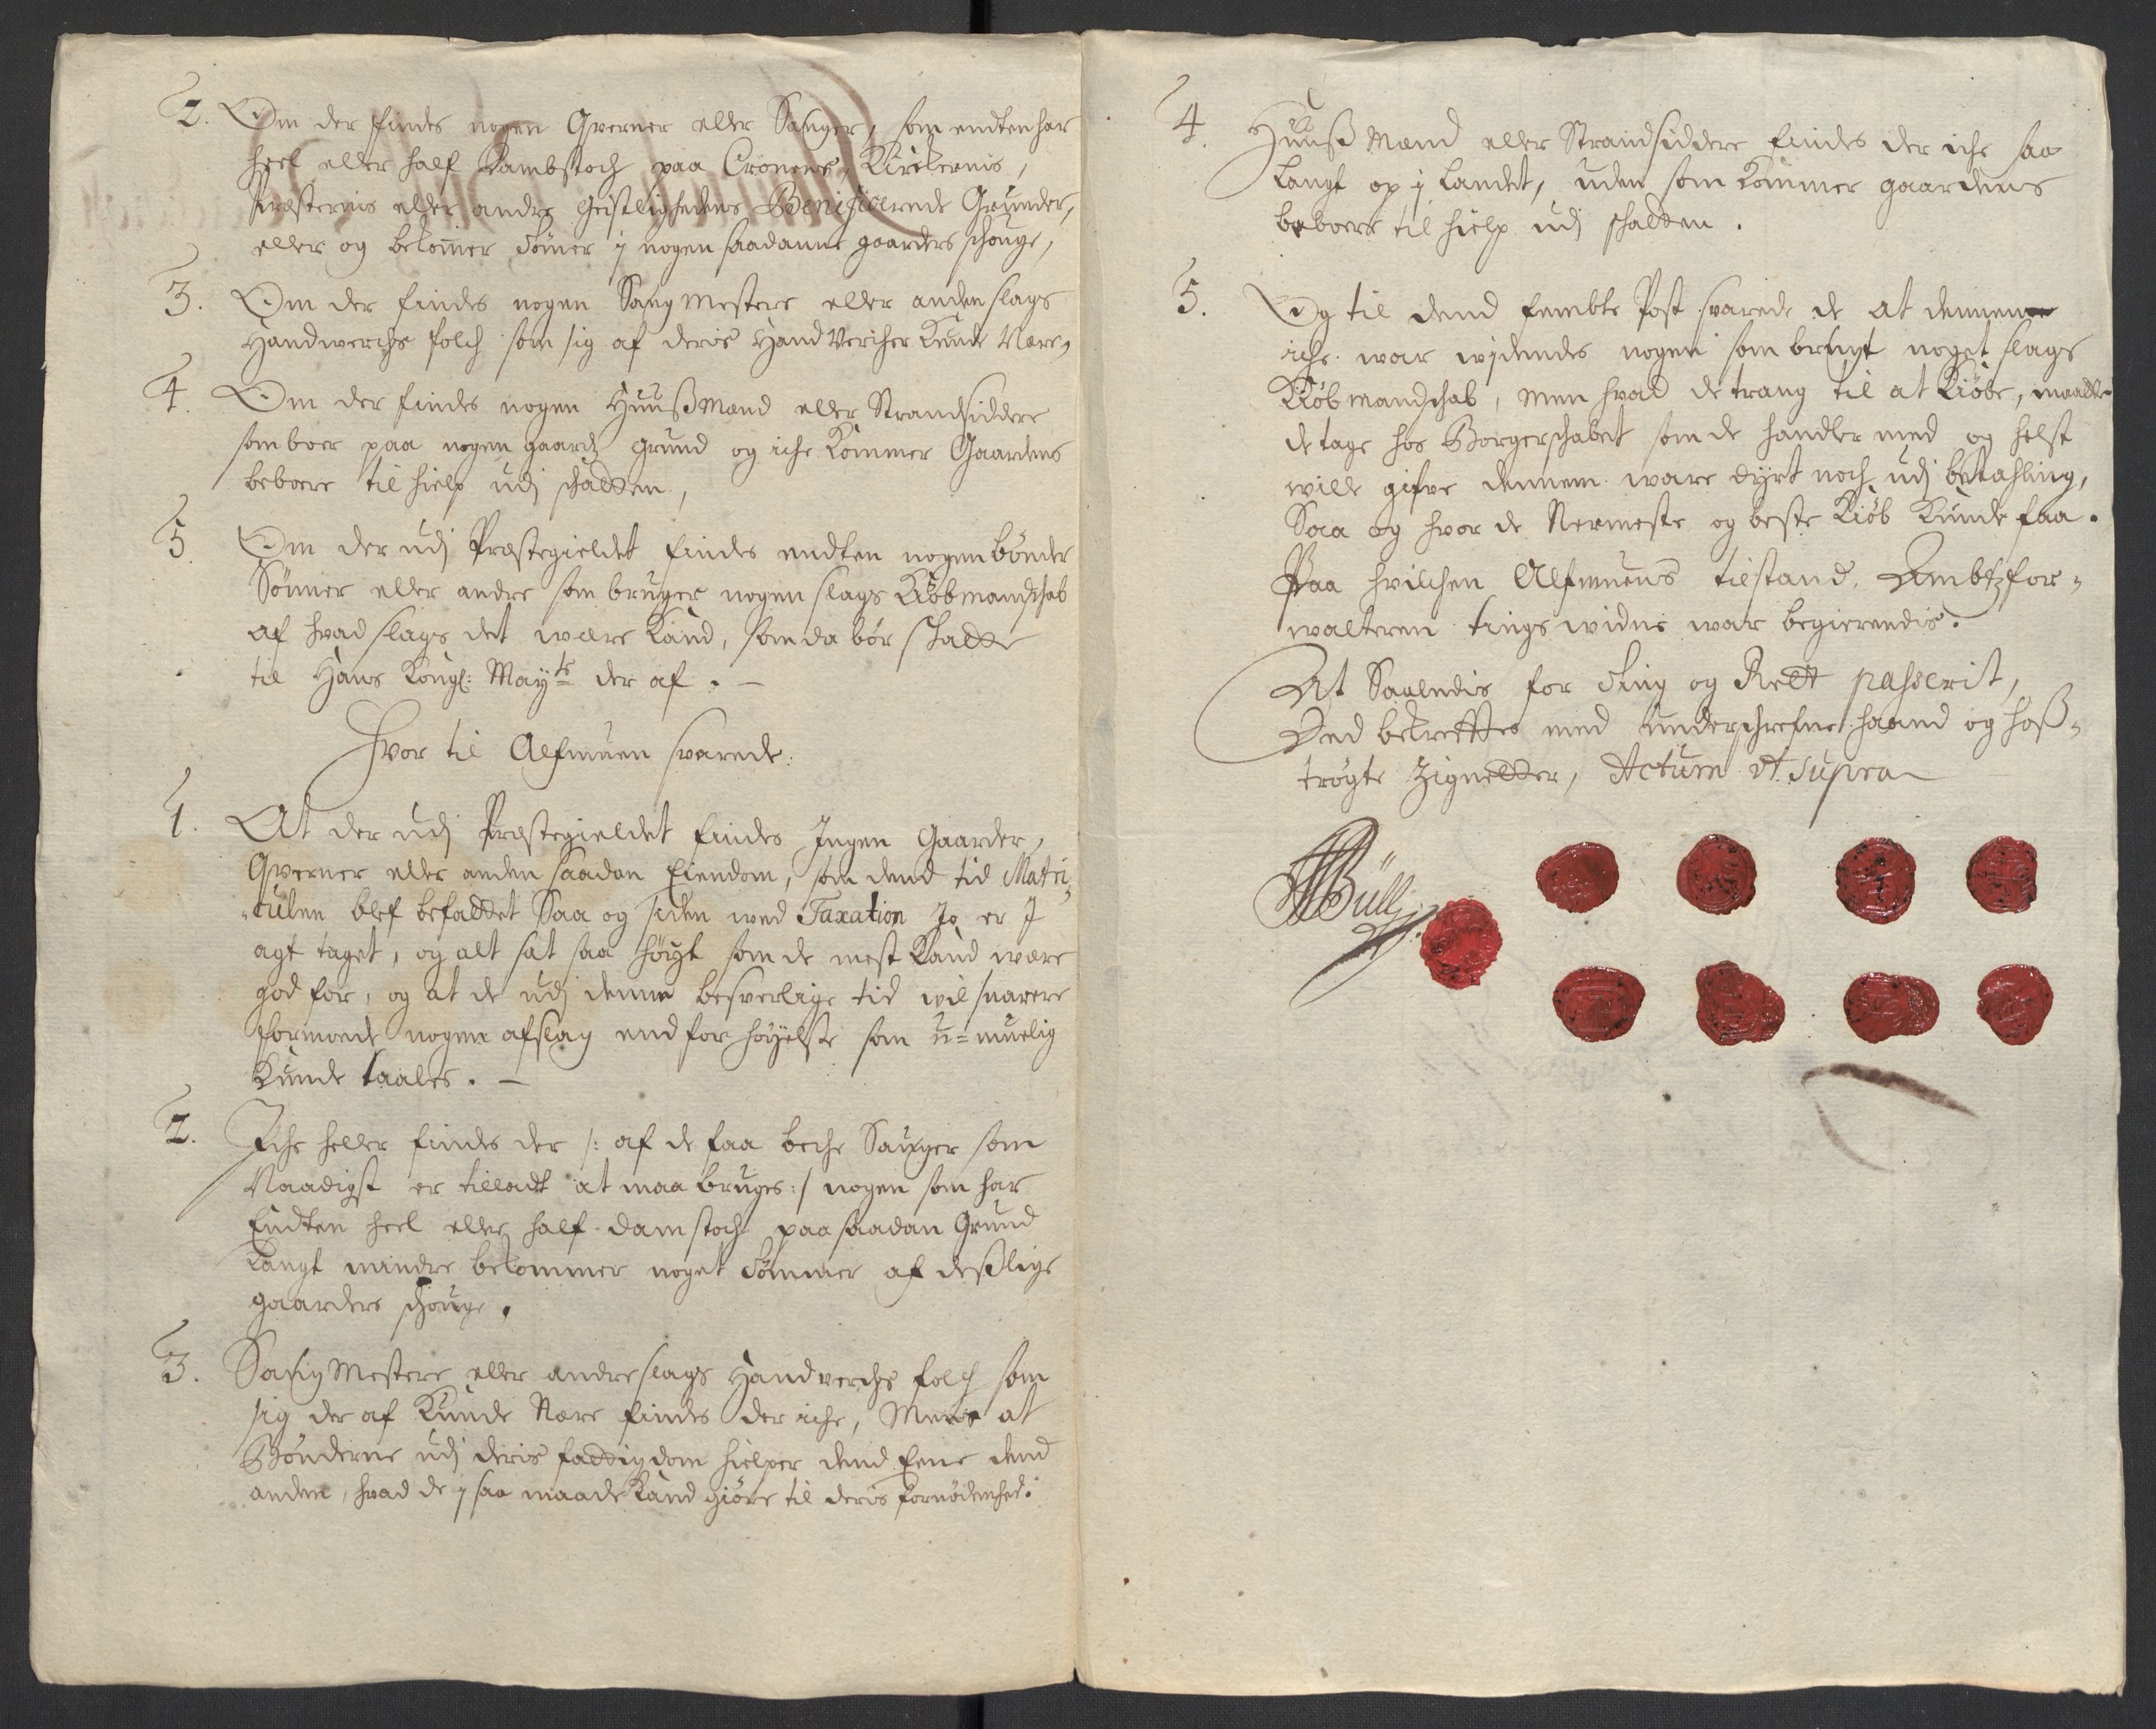 2. Om der findes nogen Qverner eller Sauger, som endten har
heel eller half Dambstoch paa Cronens, Kirkernis,
Præsternis eller andre Geistlighedens Benificerende Grunder,
eller og bekommer Tømer j nogen saadanne gaarders schouge,
3. Om der findes nogen Saugmestere eller anden slags
Handwerchs folch som sig af deris Handvercher kunde Nære,
4. Om der findes nogen Huußmænd eller Strandsiddere
som boer paa nogen gaards grund og iche kommer Gaardens
beboere til hielp udj schatten,
5 Om der udj Præstegieldet findes endten nogen bønder
Sønner eller andre som bruger nogen slags Kiøbmandschab
af hvad slags det være kand, som da bør schatte
til Hans Kongl: Mayts der af. -
Hvor til Alfmuen svarede:
1. At der udj Præstegieldet findes Ingen Gaarder,
Qverner eller anden saadan Eiendom, som dend tid Matri-
culen blef befattet Saa og siden wed Taxation Jo er J
agt taget, og alt sat saa høigt som de mest kand være
god for, og at de udj denne besverlige tid vil snarere
formode nogen afslag end forhøyelse som u-muelig
kunde taales. -
2. Iche heller findes der /: af de faa beche Sauger som
Naadigst er tilladt at maa bruges :/ nogen som har
Endten heel eller half damstoch paa saadan Grund
langt mindre bekommer noget Tømmer af deßlige
gaarders schouge.
3. Saugmestere eller andre slags Handverchs folch som
sig der af kunde Nære findes der iche, Mens at
Bønderne udj deris fattigdom hielper dend Ene dend
anden, hvad de j saa maade kand giøre til deris fornødenhed.
4. Huuß Mænd eller Strandsiddere findes der iche saa
langt op j landet, uden som kommer gaardens
beboere til hielp udj schatten.
5. Og til dend fembte Post svarede de at dennem
iche war widendes nogen som brugt noget slags
Kiøbmandschab, men hvad de trang til at kiøbe, maatte
de tage hos Borgerschabet som de handler med og helst
wille gifve dennem ware dyrt noch udj betahling,
Saa og hvor de Nermeste og beste kiøb kunde faa.
Paa hvilchen Alfmuens tilstand, Ambtzfor-
walteren tings widne war begierendis.
At Saaledis for Ting og Rett passerit,
Ded bekreftes med underschrefne haand og hoß-
trøgte Zignetter, Actum ut supra